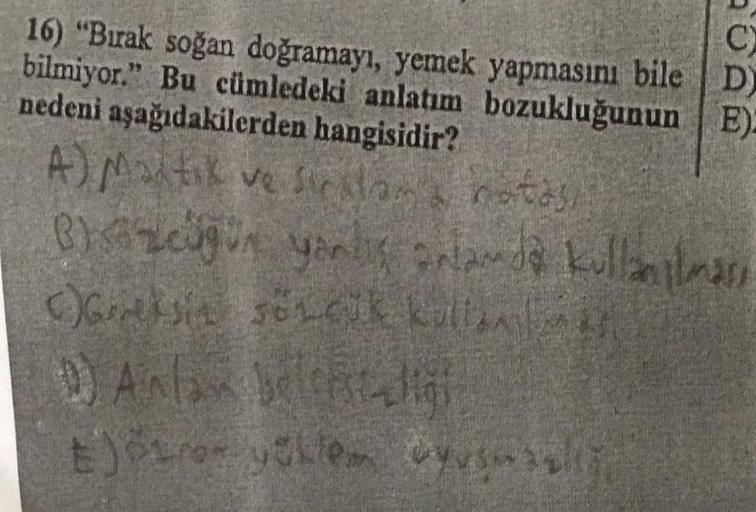 16) “Bırak soğan doğramayı, yemek yapmasını bile
bilmiyor.” Bu cümledeki anlatım bozukluğunun
nedeni aşağıdakilerden hangisidir?
A) Mantık ve sıralama hatası
B) sözcüğün yanlış anlamda kullanılması
C) Gereksiz sözcük kullanılması
D) Anlam belirsizliği
E) özne yüklem uyuşmazlığı
C)
D)
E)